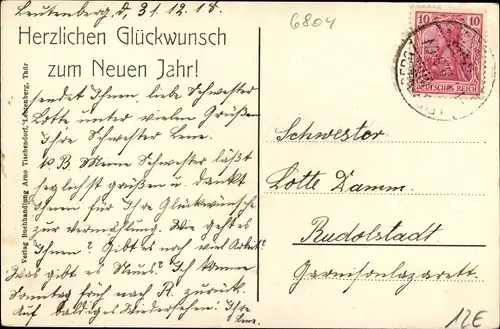 Leutenberg d. 31.12.18.
Herzlichen Glückwunsch
zum Neuen Jahr!
sendet Ihnen, liebe Schwester
Lotte unter vielen Grüßen
Ihre Schwester Lene.
P.B. Meine Schwester läßt
herzlichst grüßen u. dankt
Ihnen für Ihre Glückwünsche
zur Vermählung. Wie geht es
Ihnen? Gibt es noch viel Arbeit?
Was gibt es Neues? Ich komme
Sonntag früh nach R. zurück.
Auf baldiges Wiedersehen! Ihre
Lene.
Verlag Buchhandlung Arno Tischendorf, Leutenberg, Thür
6804
10 10
DEUTSCHES REICH
Schwester
Lotte Damm.
Rudolstadt.
Garnisonlazarett.
12E